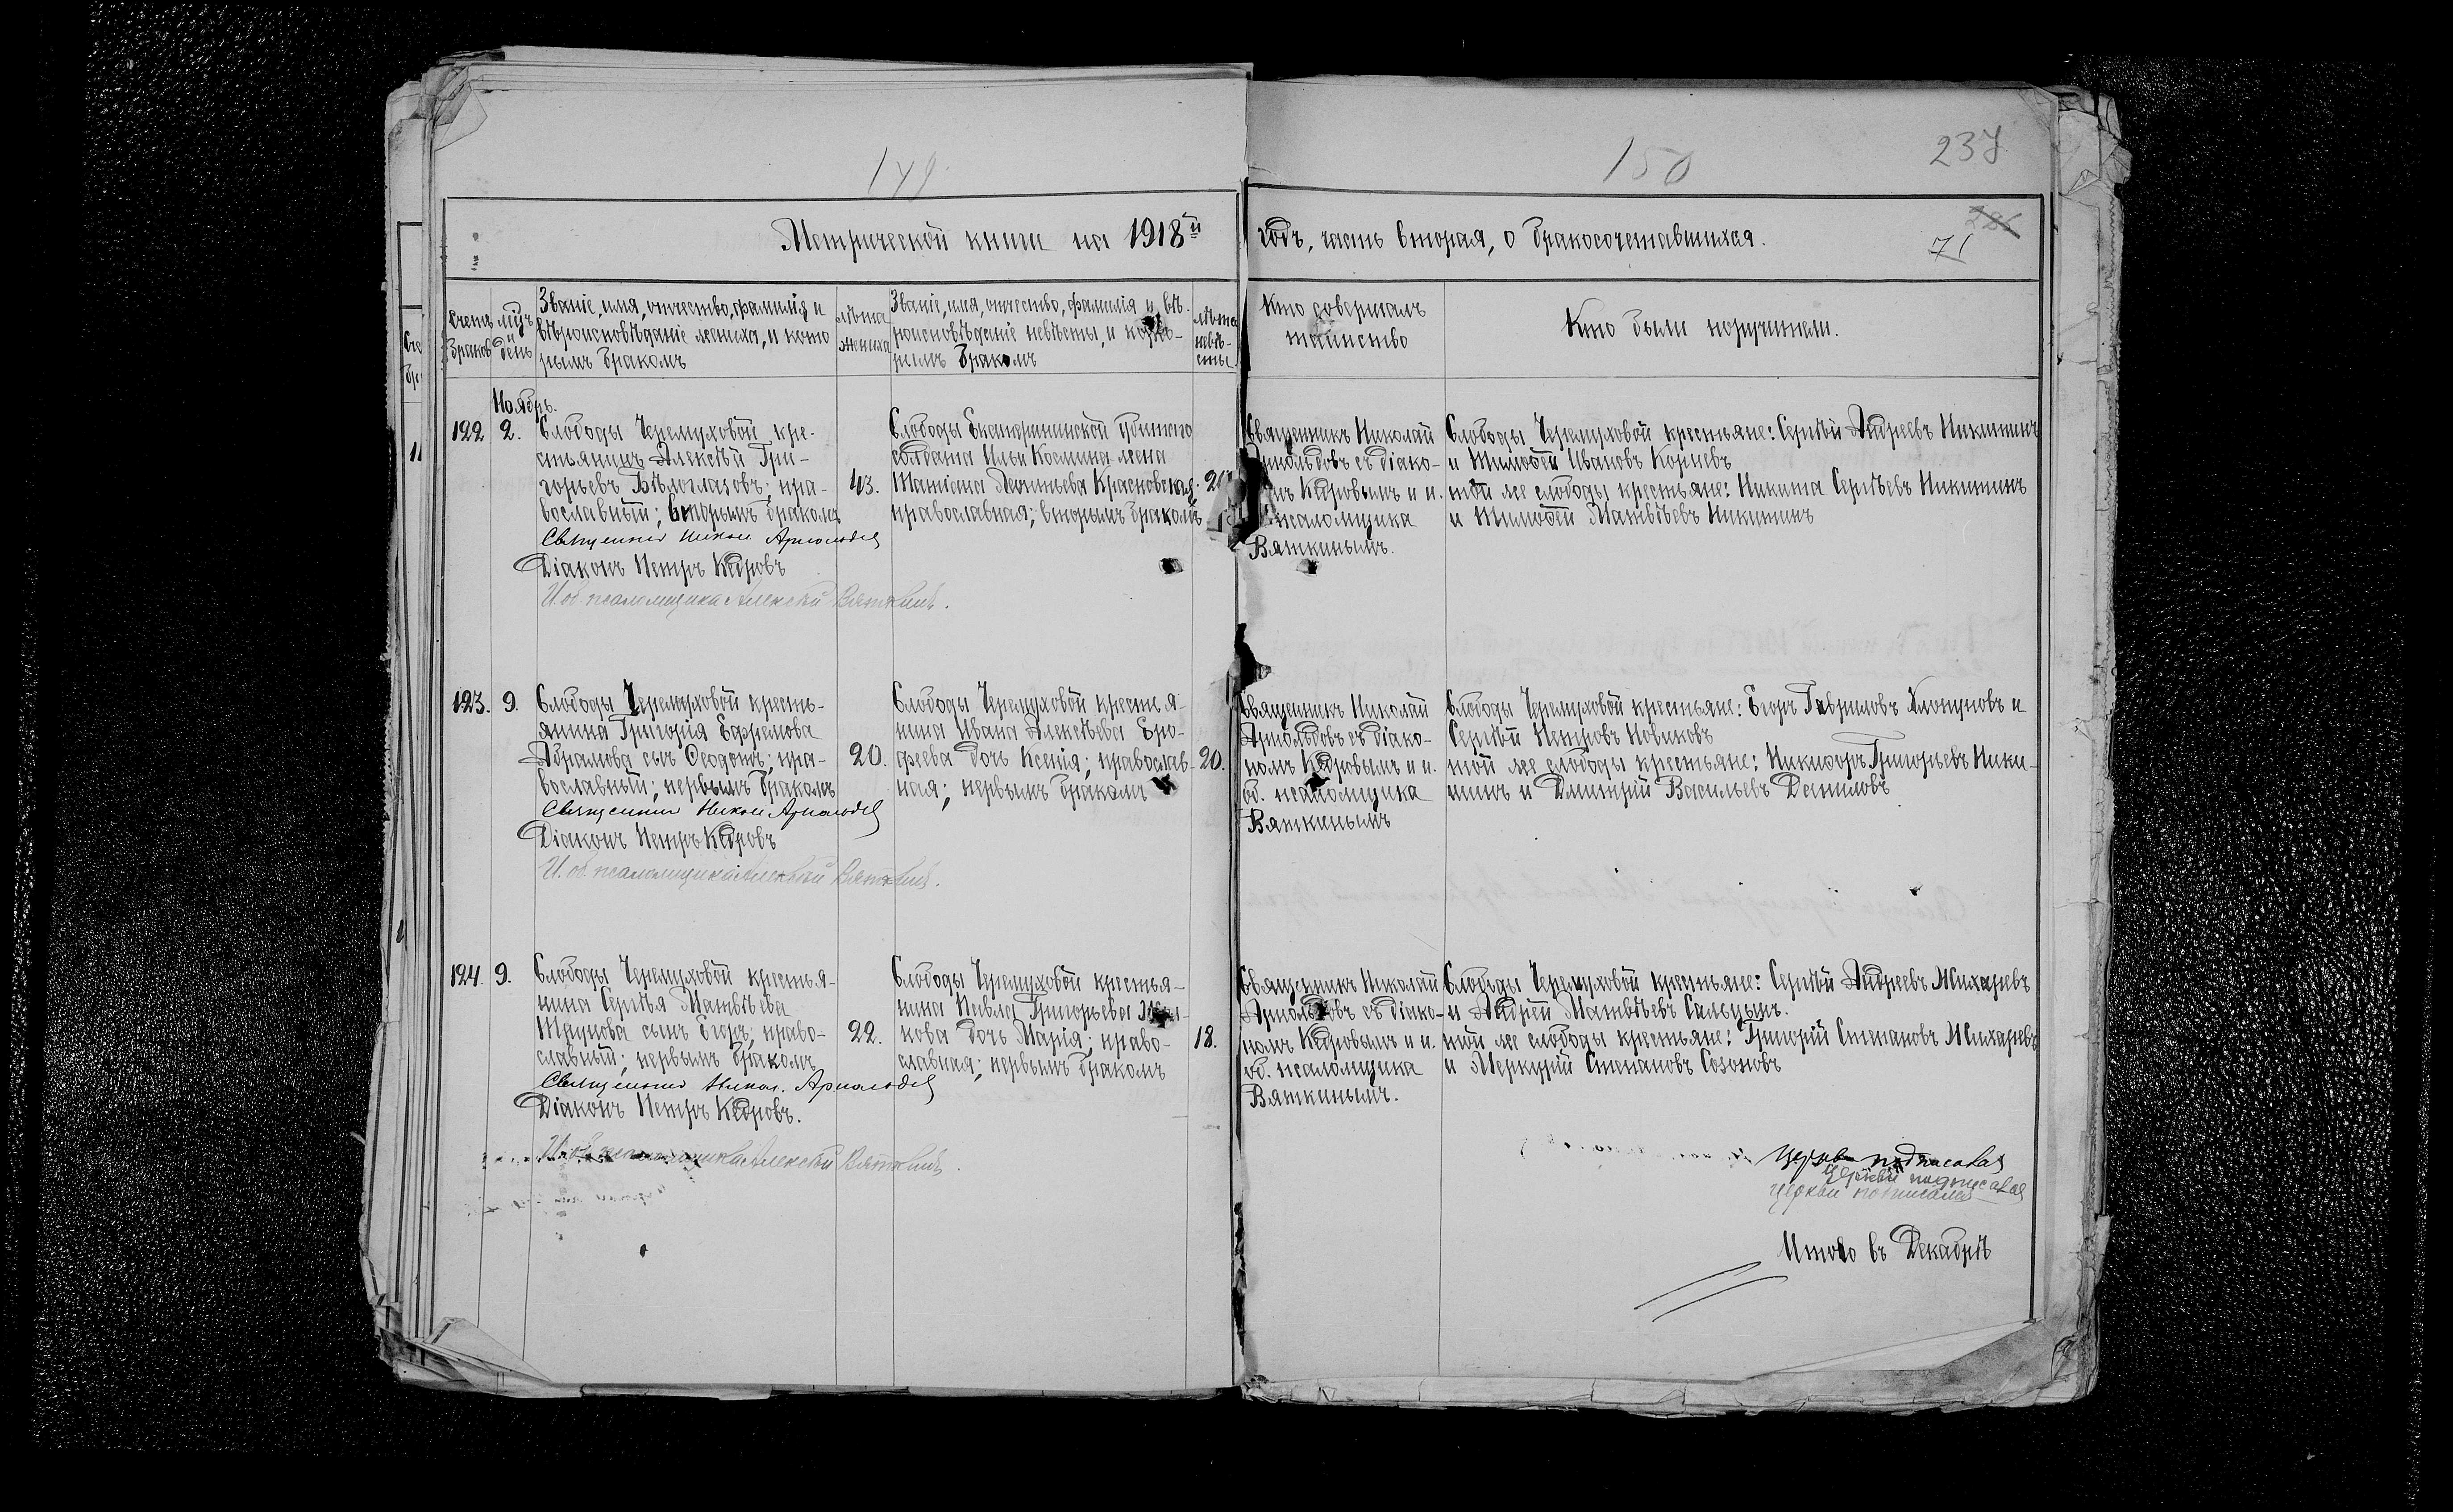 149
Метрической книги на 1918й
Счетъ браковъ
Мѣс. и день
Званіе, имя, отчество, фамилія и
вѣроисповѣданіе жениха, и кото
рымъ бракомъ
Лѣта жениха
Званіе, имя, отчество, фамилія и вѣ-
роисповѣданіе невѣсты, и кото-
рымъ бракомъ
Лѣта невѣ-
сты.
Ноябрь.
122 2.
Слободы Черемуховой кре-
стьянинъ Алексѣй Гри-
горьевъ Бѣлоглазовъ; пра-
вославный; вторымъ бракомъ
43.
Слободы Екатерининской убитаго
солдата Ильи Космина жена
Татіана Леонтьева Красковская;
православная; вторымъ бракомъ
Священникъ Никол Арнольдов
Діаконъ Петръ Кедровъ
И. об. псаломщика Алексѣй Вяткинъ.
123. 9.
Слободы Черемуховой кресть-
янина Григорія Ефремова
Абрамова сынъ Ѳеодотъ; пра-
вославный; первымъ бракомъ
20.
Слободы Черемуховой крестья-
нина Ивана Алексѣева Еро-
феева дочь Ксенія; православ-
ная; первымъ бракомъ
20.
Священникъ Никол Арнольдов
Діаконъ Петръ Кедровъ
И. об. псаломщика Алексѣй Вяткинъ.
124. 9.
Слободы Черемуховой крестья-
нина Сергѣя Матвѣева
Трунова сынъ Егоръ; право-
славный; первымъ бракомъ
22.
Слободы Черемуховой крестья-
нина Павла Григорьева
кова дочь Марія; право-
славная; первымъ бракомъ
18.
Священникъ Никол. Арнольдов
Діаконъ Петръ Кедровъ.
И. об. псаломщика Алексѣй Вяткинъ.
150
237
71
годъ, часть вторая, о бракосочетавшихся.
Кто совершалъ
таинство
Кто были поручители.
Священникъ Николай
Арнольдовъ съ діако-
номъ Кедровымъ и и.
псаломщика
Вяткинымъ.
Слободы Черемуховой крестьяне: Сергѣй Андреевъ Никитинъ
и Тимоѳей Ивановъ Корневъ
той же слободы крестьяне: Никита Сергѣевъ Никитинъ
и Тимоѳей Матвѣевъ Никитинъ
Священникъ Николай
Арнольдовъ съ діако-
номъ Кедровымъ и и.
об. псаломщика
Вяткинымъ
Слободы Черемуховой крестьяне: Егоръ Гавриловъ Хлопуновъ и
Сергѣй Петровъ Новиковъ
той же слободы крестьяне: Никифоръ Григорьевъ Ники-
тинъ и Дмитрій Васильевъ Даниловъ
Священникъ Николай
Арнольдовъ съ діако-
номъ Кедровымъ и и.
об. псаломщика
Вяткинымъ.
Слободы Черемуховой крестьяне: Сергѣй Андреевъ Жихаревъ
и Андрей Матвѣевъ Сальцынъ.
той же слободы крестьяне: Григорій Степановъ Жихаревъ
и Меркурій Степановъ Созоновъ
Итого въ Декабрѣ